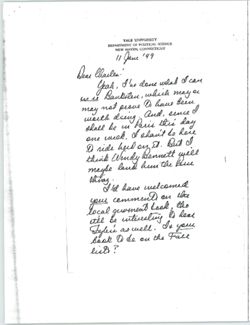 YALE UNIVERSITY
DEPARTMENT OF POLITICAL SCIENCE
NEW HAVEN, CONNECTICUT
11 June '49
Dear Charles:
Yeah, I've done what I can
, which may or
may not prove to have been
worth doing. And, since I
shall be in Paris this day
one week, I shan't be here
to ride herd on it. But I
think Wendy Bennett will
maybe land him the
thing.
I'd have welcomed
your comment on the
local book, tho
it'll be interesting to hear
as well. Is your
book to be on the Fall
lists?